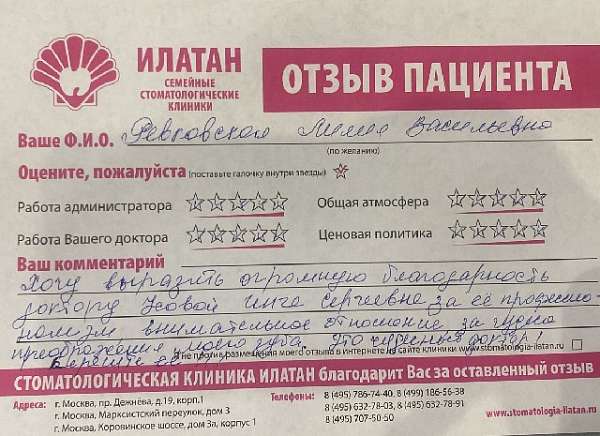 ИЛАТАН
СЕМЕЙНЫЕ
СТОМАТОЛОГИЧЕСКИЕ
КЛИНИКИ
ОТЗЫВ ПАЦИЕНТА
Ваше Ф.И.О. Васильевна
(по желанию)
Оцените, пожалуйста (поставьте галочку внутри звезды)
Работа администратора
Общая атмосфера
Работа Вашего доктора
Ценовая политика
Ваш комментарий
Хочу выразить огромную благодарность
доктору Сергеевне за её професио-
нализм внимательное отношение за чудо
преображения моего зуба. Это чудесный доктор!
Берегите её
Не против размещения моего отзыва в интернете/на сайте клиники www.stomatologia-ilatan.ru
СТОМАТОЛОГИЧЕСКАЯ КЛИНИКА ИЛАТАН благодарит Вас за оставленный отзыв
Адреса: г. Москва, пр. Дежнёва, д.19, корп.1
г. Москва, Марксистский переулок, дом 3
г. Москва, Коровинское шоссе, дом 3а, корпус 1
Телефоны: 8 (495) 786-74-40, 8 (499) 186-56-38
8 (495) 632-78-03, 8 (495) 632-78-91
8 (495) 707-50-50
www.stomatologia-ilatan.ru